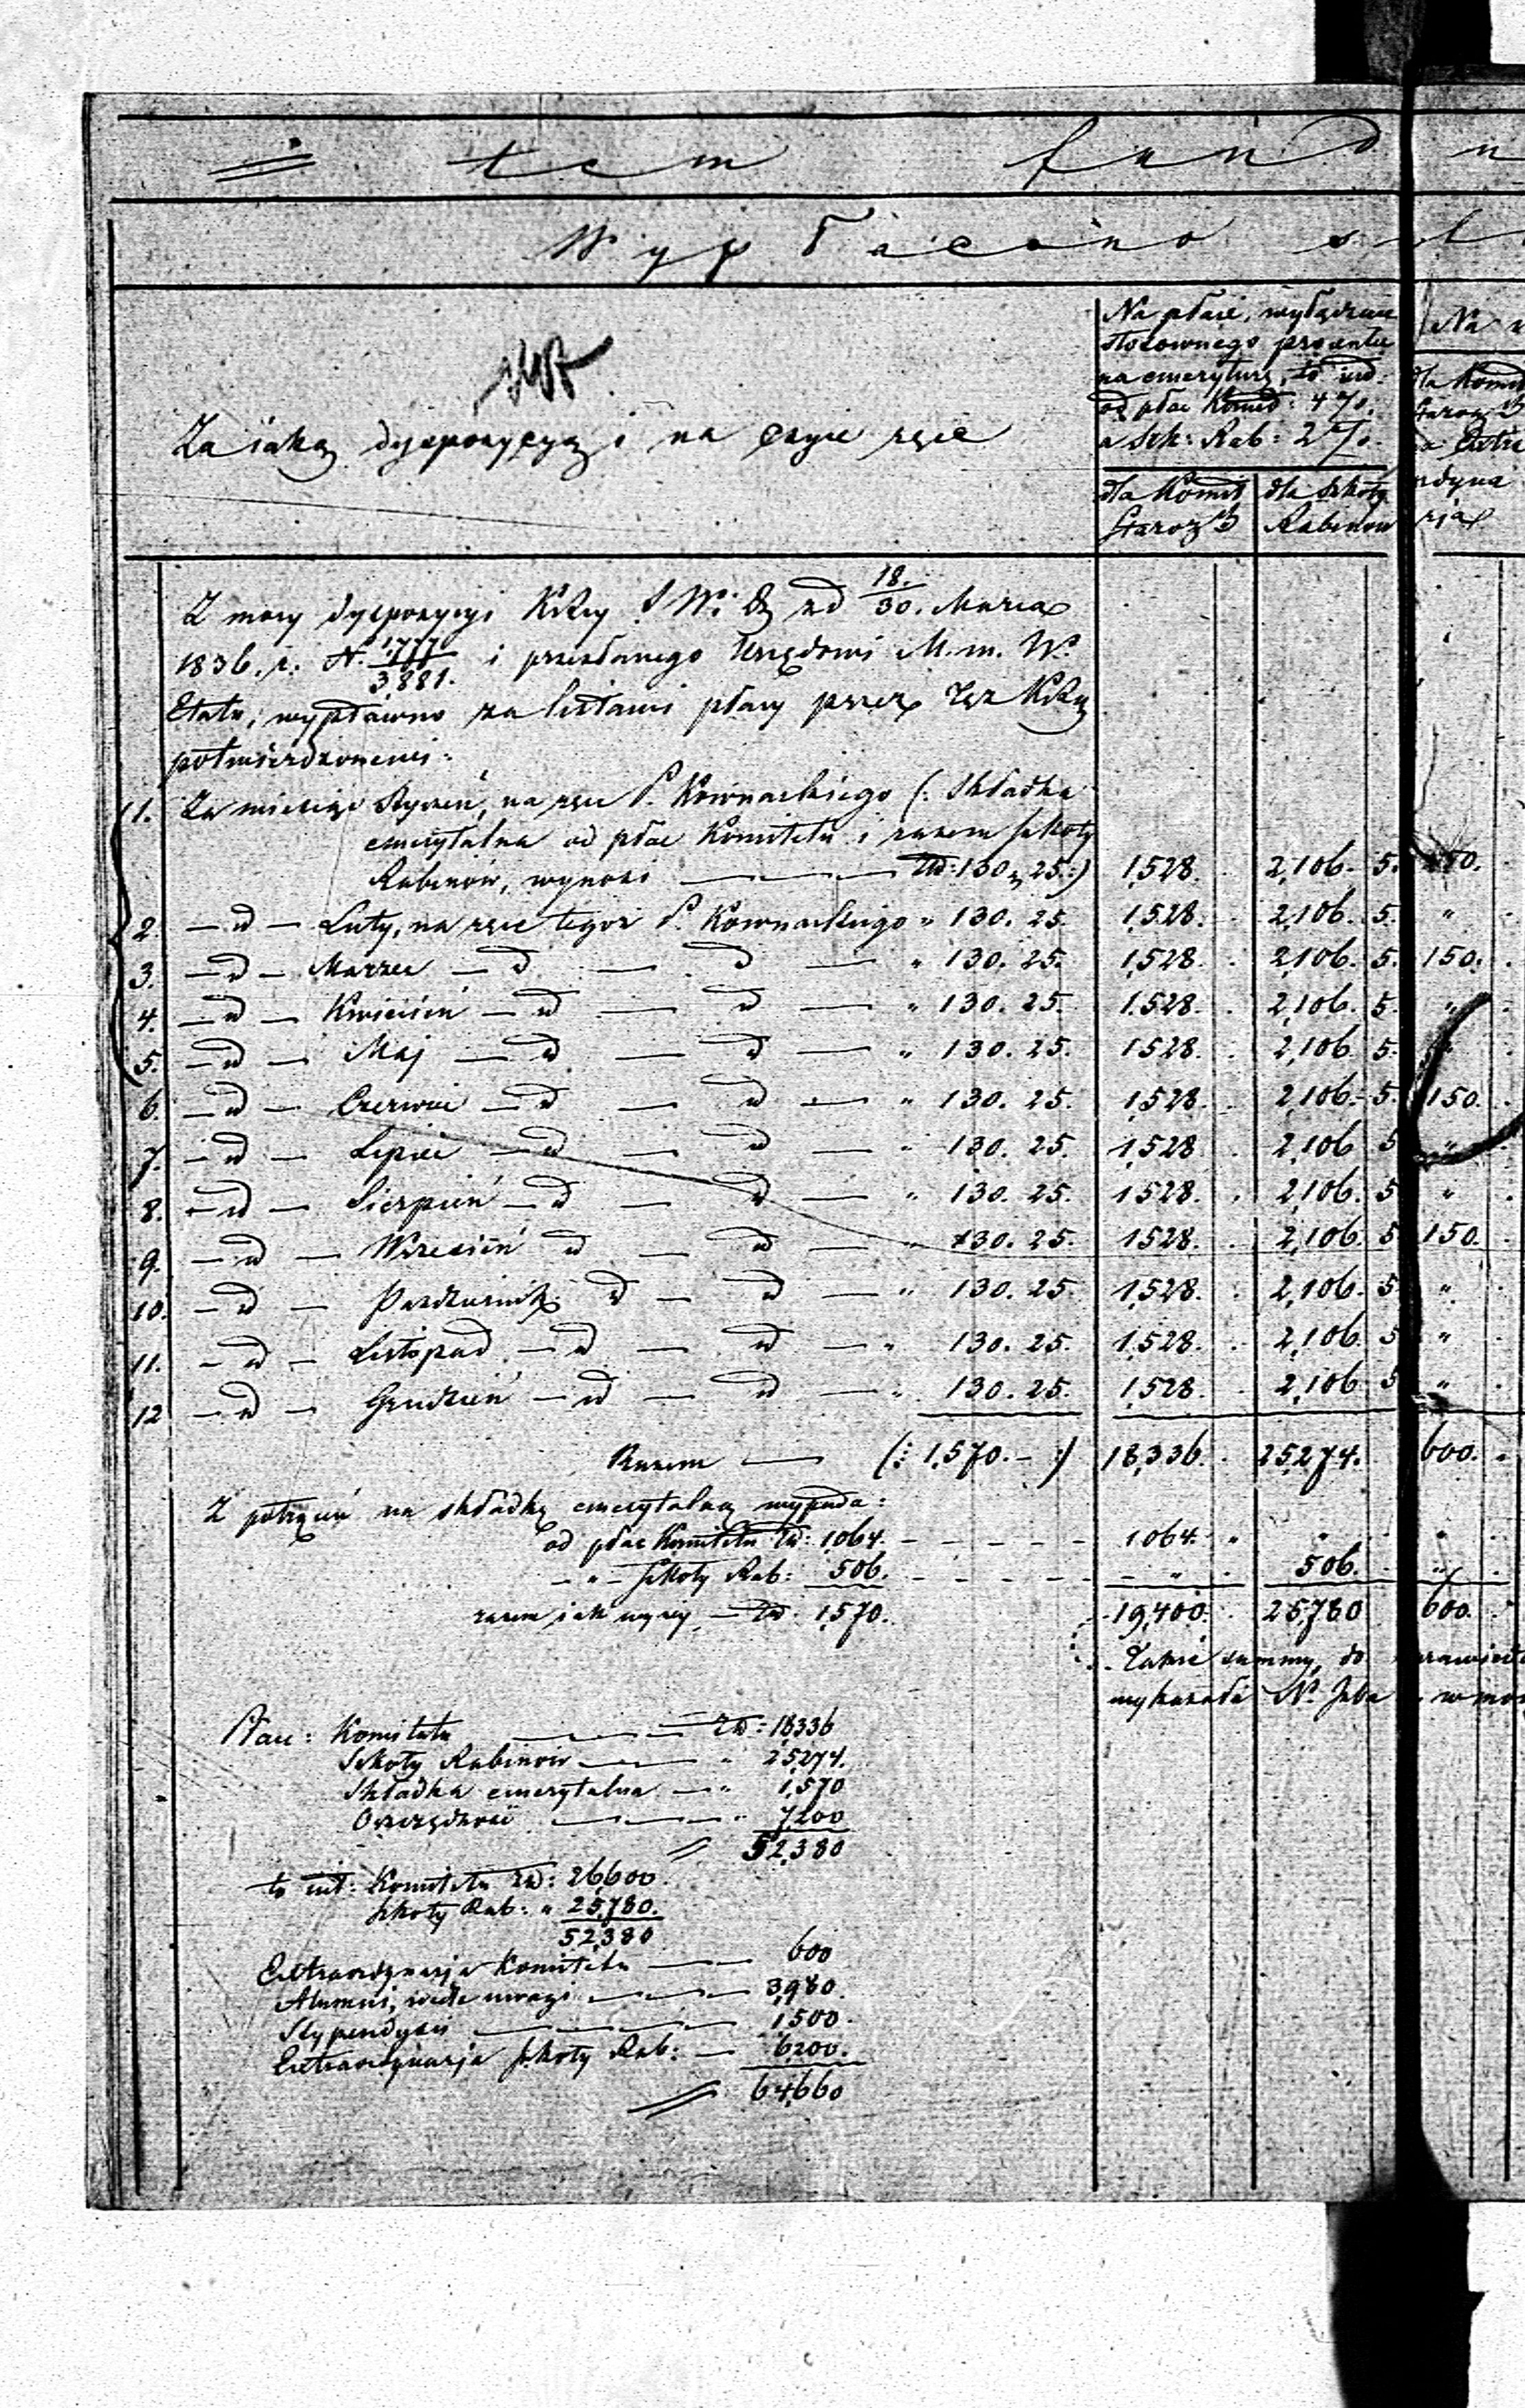 tem fund
Wypłacono
Na płace, wyłącznie
stosownego procentu
na emeryturę, to jest:
od płac Komit: 4 %.
a Szk: Rab: 2 %.
Za iaką dyspozycyą i na czyie ręce
dla Komit dla Szkoły
Staroz Rabinów
Z mocy dyspozycyi KRzy S. W. D. zd 18/30. Marca
1836. r. N. 1,777/3,881. i przesłanego Urzędowi M. m. W.
Etatu, wypłacono za listami płacy przez tęz KRzą
potwierdzonemi:
1. Za miesiąc Styczeń, na ręce P. Kownackiego (: Składka
emerytalna od płac Komitetu i razem Szkoły
Rabinów, wynosi — Zł: 130 g 25 :) 1,528. 2,106. 5. 150.
2. — d — Luty, na ręce tegoż P. Kownackiego " 130. 25. 1,528. 2,106. 5. "
3. — d — Marzec — d — d — " 130. 25. 1,528. 2,106. 5. 150.
4. — d — Kwiecień — d — d — " 130. 25. 1.528. 2,106. 5. "
5. — d — Maj — d — d — " 130. 25. 1528. 2,106 5. "
6. — d — Czerwiec — d — d — " 130. 25. 1,528. 2,106. 5. 150.
7. — d — Lipiec — d — d — " 130. 25. 1,528 2,106 5 "
8. — d — Sierpień — d — d — " 130. 25. 1528. 2,106. 5 "
9. — d — Wrzesień d — d — " 130. 25. 1528. 2,106. 5 150.
10. — d — Pazdziernik d — d — " 130. 25. 1,528. 2,106. 5 "
11. — d — Listopad — d — d — " 130. 25. 1,528. 2,106 5 "
12 — d — Grudzień — d — d — " 130. 25. 1,528. 2,106 5 "
Razem — (: 1,570. — :) 18,336. 25,274. 600.
Z potrąceń na składkę emerytalną wypada:
od płac Komitetu Zł: 1,064. - - - - - 1064. " " "
— " — Szkoły Rab: 506. - - - - - " 506. "
razem jak wyżej — Zł. 1,570. 19,400. 25,780 600.
Takie summy, do
wykazała N.
Płace: Komitetu — Zł: 18,336
Szkoły Rabinów — " 25,274.
Składka emerytalna — " 1,570
Oszczędność — " 7,200
52,380
to iest: Komitetu Zł: 26,600.
Szkoły Rab: " 25,780.
52,380
Extraordynarja Komitetu — 600
Alumni, wedle uwagi — 3,980.
Stypendyści — 1,500.
Extraordynarja Szkoły Rab: — 6,200.
64,660